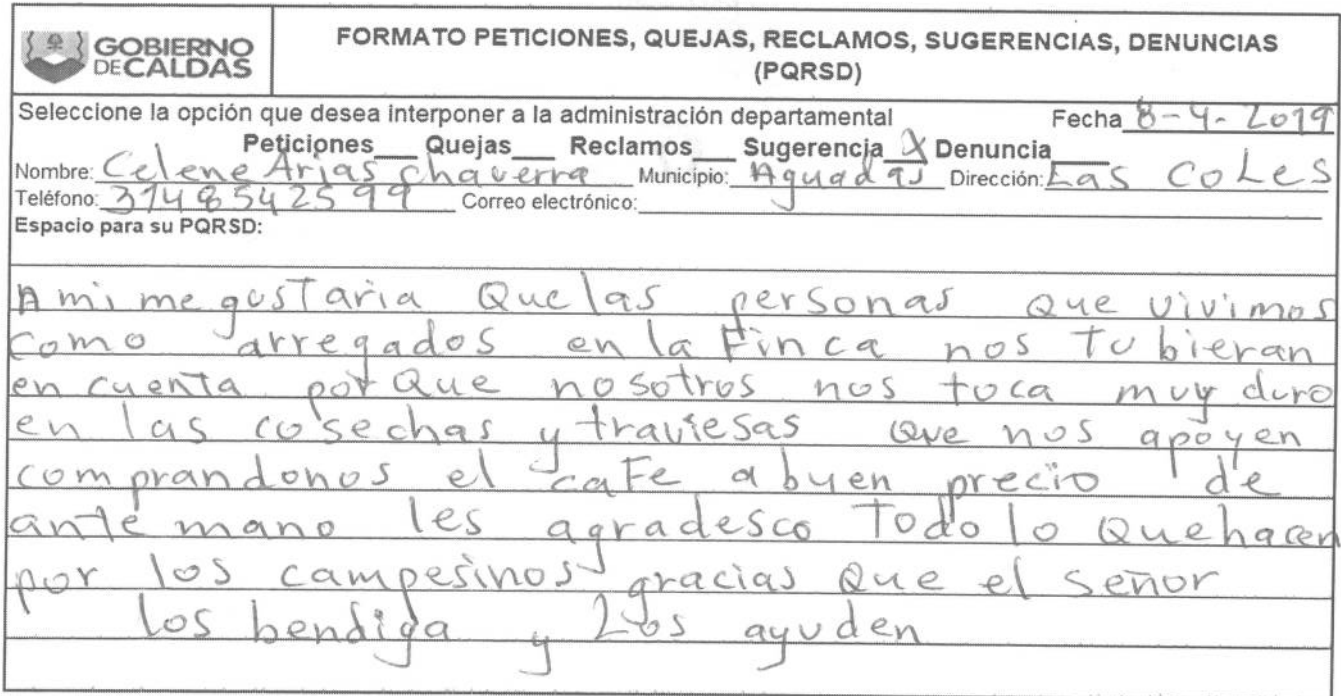 GOBIERNO
DE CALDAS
FORMATO PETICIONES, QUEJAS, RECLAMOS, SUGERENCIAS, DENUNCIAS
(PQRSD)
Seleccione la opción que desea interponer a la administración departamental Fecha 8-4-2019
Peticiones__ Quejas__ Reclamos__ Sugerencia X Denuncia__
Nombre: Celene Arias chaverra Municipio: Aguadas Dirección: Las CoLes
Teléfono: 3148542599 Correo electrónico:
Espacio para su PQRSD:
A mi me gusTaria Que las personas que vivimos
como arregados en la Finca nos Tubieran
en cuenta porQue nosotros nos toca muy duro
en las cosechas y traviesas Que nos apoyen
comprandonos el caFe a buen precio de
ante mano les agradesco Todo lo Que hacen
por los campesinos gracias Que el señor
los bendiga y Los ayuden